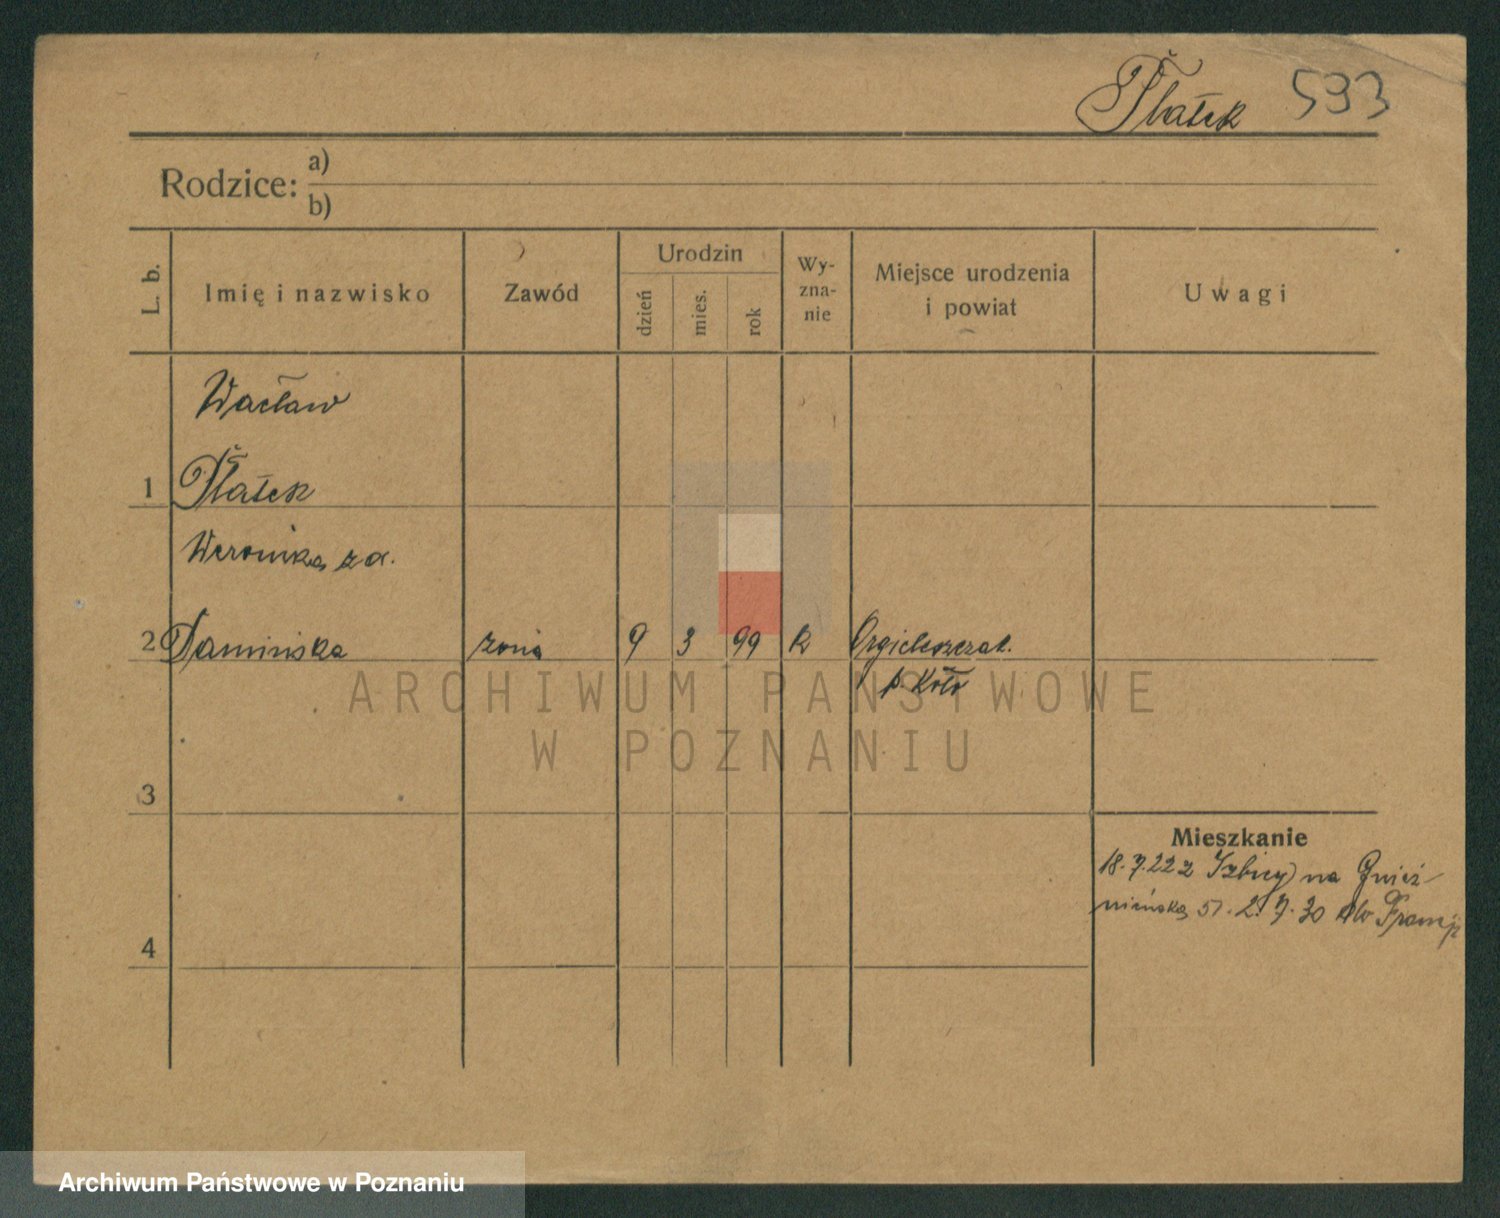 Płatek 593
Rodzice: a)
b)
L. b.
Imię i nazwisko
Zawód
Urodzin
dzień
mies.
rok
Wy-
zna-
nie
Miejsce urodzenia
i powiat
Uwagi
Wacław
1 Płatek
Weronika z d.
2 Damińska żona 9 3 99 k
p. Koło
ARCHIWUM PAŃSTWOWE
W POZNANIU
3
Mieszkanie
18.7.22 z Izbicy na Gnieź-
nieńską 51. 2.7.30 do
4
Archiwum Państwowe w Poznaniu